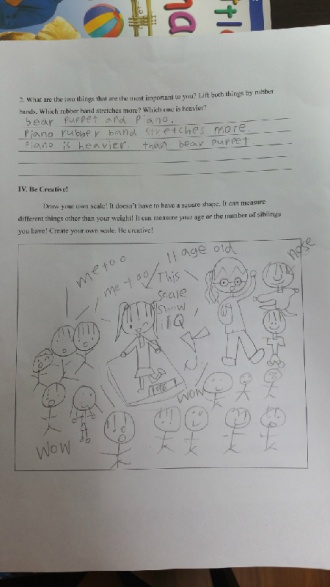 2. What are the two things that are the most important to you? Lift both things by rubber
bands. Which rubber band stretches more? Which one is heavier?
bear puppet and piano.
Piano rubber band stretches more
Piano is heavier. than bear puppet
IV. Be Creative!
Draw your own scale! It doesn't have to have a square shape. It can measure
different things other than your weight! It can measure your age or the number of siblings
you have! Create your own scale. Be creative!
me too
me too
11 age old
This
scale
show
IQ
nose
wow
wow